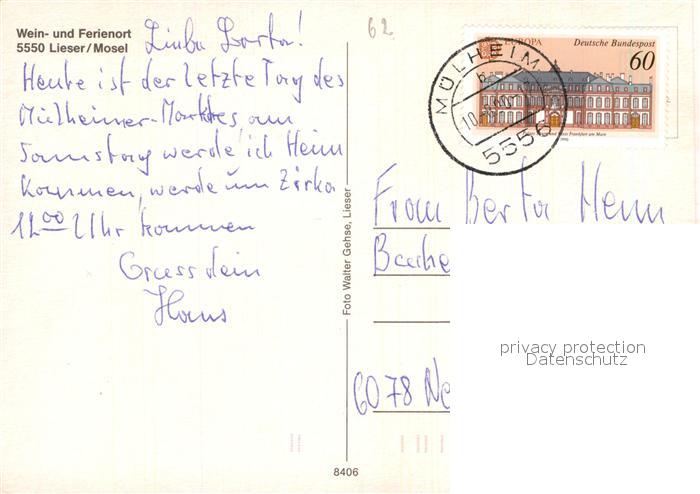 Wein- und Ferienort
5550 Lieser/Mosel
Liebe Berta!
Heute ist der letzte Tag des
Mülheimer-Marktes am
Samstag werde ich Heim
kommen, werde um Zirka
12 00 Uhr kommen
Gruss dein
Hans
Foto Walter Gehse, Lieser
8406
62
EUROPA
Deutsche Bundespost
60
MÜLHEIM
5556
Frankfurt am Main
Frau Berta Henn
6078 Ne
privacy protection
Datenschutz